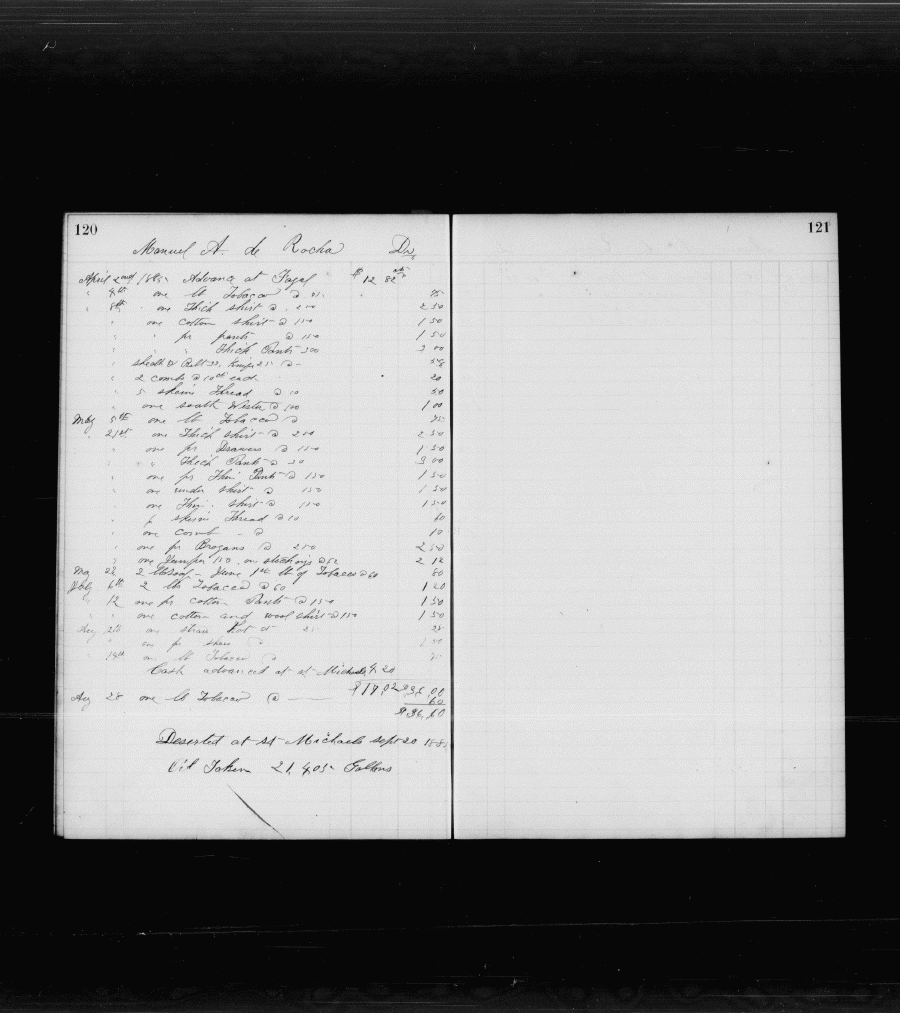 120
Manuel A. de Rocha Dr
April 2nd 188 Advance at Fayal $12 82
" 4th one lb Tobacco @ 75
" 8th " one Thick shirt @ 250 2 50
" one cotton shirt @ 150 1 50
" " pr pants @ 150 1 50
" " " Thick Pants 300 3 00
" sheath & Belt knife 25 @
" 2 combs @ 10 each 20
" 5 skeins Thread @ 10 50
" one south Wester @ 100 1 00
May 5th one lb Tobacco @ 75
" 21st one Thick shirt @ 250 2 50
" one pr Drawers @ 150 1 50
" " Thick Pants @ 3 00
" one pr Thin Pants @ 150 1 50
" one under shirt @ 150 1 50
" one Thin shirt @ 150 1 50
" skeins Thread @ 10 60
" one comb @ 10
" one pr Brogans @ 250 2 50
" one Jumper 150 stockings @ 62 2 12
May 22 June 1st lb of Tobacco @ 60 60
July 6th 2 lb Tobacco @ 60 1 20
" 12 one pr cotton Pants @ 150 1 50
" " one cotton and wool shirt @ 150 1 50
Aug one straw Hat 25 25
" one pr @
" 14th one lb Tobacco @ 75
Cash advanced at st Michaels 4.20
$17.02 36.00
Aug 28 one lb Tobacco @ 60
$36.60
Deserted at St Michaels sept 20 188
Oil Taken 21,405 Gallons
121